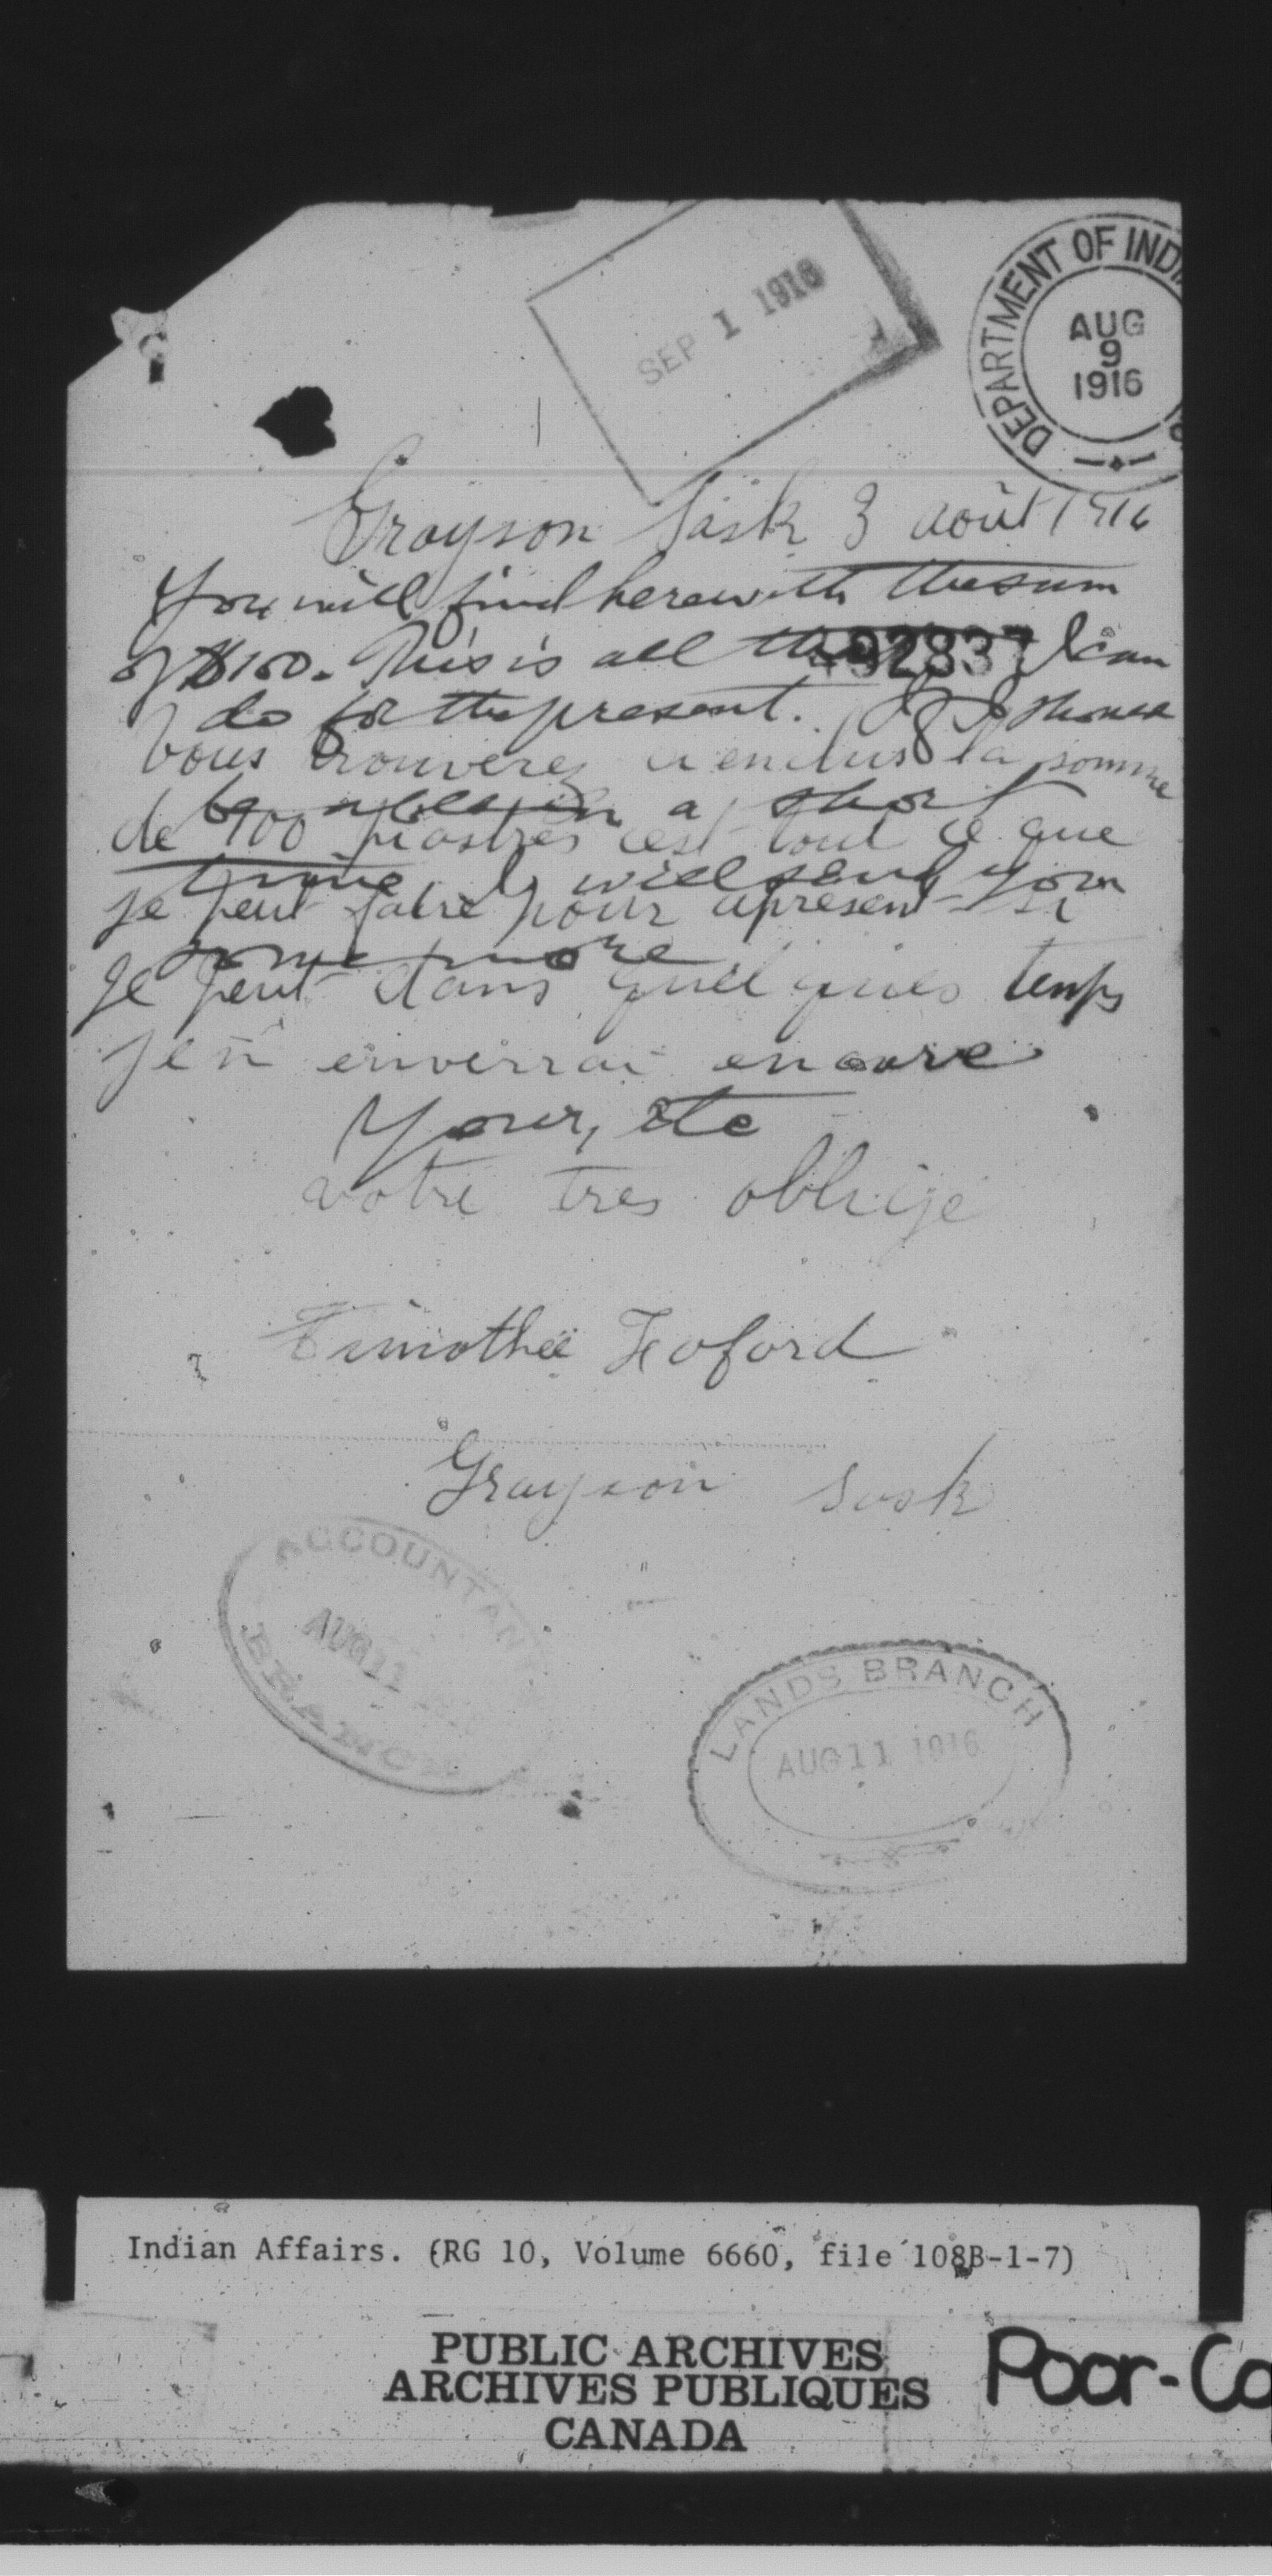 SEP 1 1916
DEPARTMENT OF INDI
AUG
9
1916
Grayson Sask 3 août 1916
You will find herewith the sum
of $100. This is all that I can
492837
do for the present. If I should
Vous trouverez ci enclus la somme
be able in a short
de 100 piastres cest tout ce que
time I will send you
je peut faire pour apresent si
some more
je peut dans quelques temps
jen enverrai encore
Yours, etc
votre tres obligé
Timothée
Grayson Sask
ACCOUNTANT
AUG 11
BRANCH
LANDS BRANCH
AUG 11 1916
Indian Affairs. (RG 10, Volume 6660, file 108B-1-7)
PUBLIC ARCHIVES
ARCHIVES PUBLIQUES
CANADA
Poor-Co